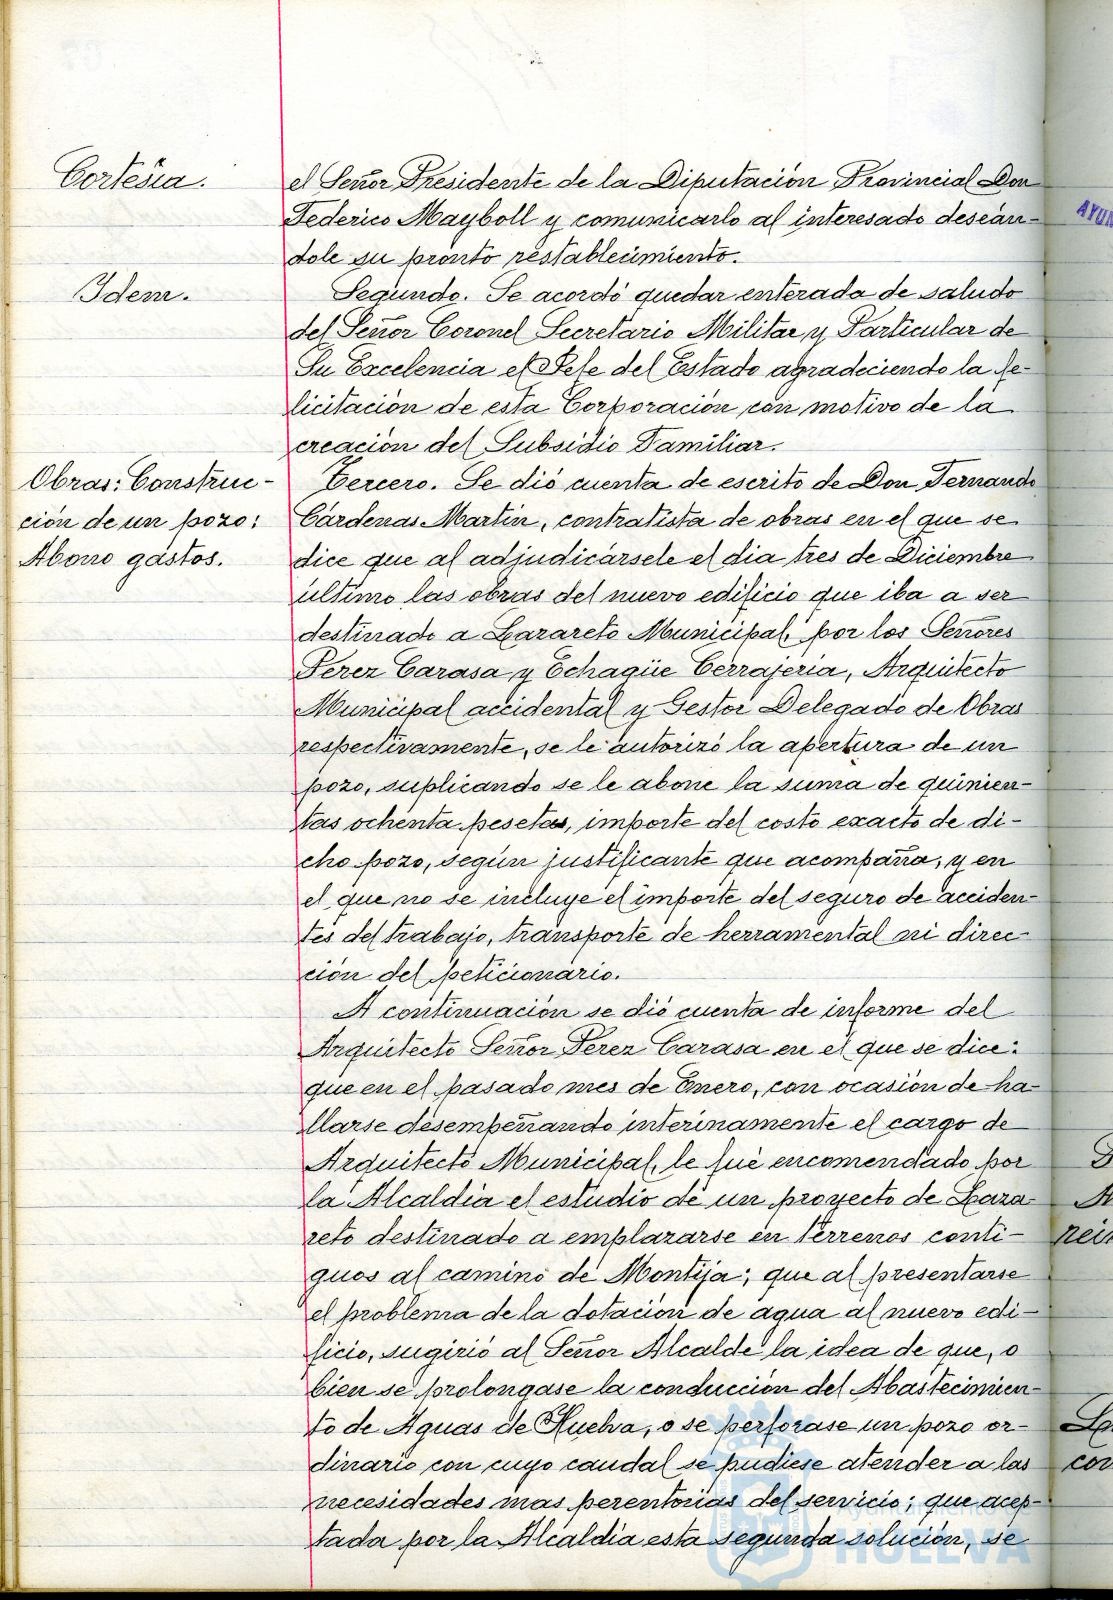 Cortesia.
el Señor Presidente de la Diputación Provincial Don
Federico Mayboll y comunicarlo al interesado deseán-
dole su pronto restablecimiento.
Idem.
Segundo. Se acordó quedar enterada de saludo
del Señor Coronel Secretario Militar y Particular de
Su Excelencia el Jefe del Estado agradeciendo la fe-
licitación de esta Corporación con motivo de la
creación del Subsidio Familiar.
Obras: Construc-
ción de un pozo:
Abono gastos.
Tercero. Se dió cuenta de escrito de Don Fernando
Cárdenas Martín, contratista de obras en el que se
dice que al adjudicársele el dia tres de Diciembre
último las obras del nuevo edificio que iba a ser
destinado a Lazareto Municipal, por los Señores
Perez Carasa y Echagüe Cerrajeria, Arquitecto
Municipal accidental y Gestor Delegado de Obras
respectivamente, se le autorizó la apertura de un
pozo, suplicando se le abone la suma de quinien-
tas ochenta pesetas, importe del costo exacto de di-
cho pozo, según justificante que acompaña, y en
el que no se incluye el importe del seguro de acciden-
tes del trabajo, transporte de herramental ni direc-
ción del peticionario.
A continuación se dió cuenta de informe del
Arquitecto Señor Perez Carasa en el que se dice:
que en el pasado mes de Enero, con ocasión de ha-
llarse desempeñando interinamente el cargo de
Arquitecto Municipal, le fué encomendado por
la Alcaldia el estudio de un proyecto de Laza-
reto destinado a emplazarse en terrenos conti-
guos al camino de Montija; que al presentarse
el problema de la dotación de agua al nuevo edi-
ficio, sugirió al Señor Alcalde la idea de que, o
bien se prolongase la conducción del Abastecimien-
to de Aguas de Huelva, o se perforase un pozo or-
dinario con cuyo caudal se pudiese atender a las
necesidades mas perentorias del servicio; que acep-
tada por la Alcaldia esta segunda solución, se
Ayuntamiento de
HUELVA